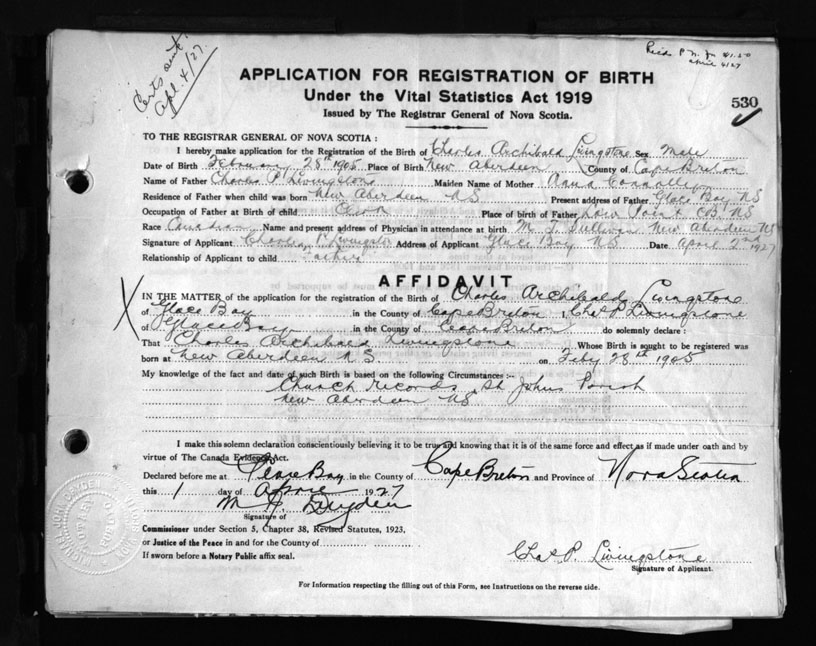 Certs sent
Apl. 4/27.
April 4/27
APPLICATION FOR REGISTRATION OF BIRTH
Under the Vital Statistics Act 1919
Issued by The Registrar General of Nova Scotia.
530
TO THE REGISTRAR GENERAL OF NOVA SCOTIA :
I hereby make application for the Registration of the Birth of Charles Archibald Livingstone Sex Male
Date of Birth February 28th 1905 Place of Birth New Aberdeen County of Cape Breton
Name of Father Charles P. Livingstone Maiden Name of Mother Connolly
Residence of Father when child was born New Aberdeen NS Present address of Father Glace Bay NS
Occupation of Father at Birth of child Place of birth of Father Low Point CB. NS
Race Canadian Name and present address of Physician in attendance at birth M. T. Sullivan New Aberdeen NS
Signature of Applicant Charles P. Livingstone Address of Applicant Glace Bay NS Date April 2nd 1927
Relationship of Applicant to child Father
AFFIDAVIT
X
IN THE MATTER of the application for the registration of the Birth of Charles Archibald Livingstone
of Glace Bay in the County of Cape Breton I, Chas P Livingstone
of Glace Bay in the County of Cape Breton do solemnly declare :
That Charles Archibald Livingstone Whose Birth is sought to be registered was
born at New Aberdeen N.S. on Feby 28th 1905
My knowledge of the fact and date of such Birth is based on the following Circumstances :-
Church records St Johns Parish
New Aberdeen NS
I make this solemn declaration conscientiously believing it to be true and knowing that it is of the same force and effect as if made under oath and by
virtue of The Canada Evidence Act.
Declared before me at Glace Bay in the County of Cape Breton and Province of Nova Scotia
this 1 day of April 1927
Dryden
Signature of
Commissioner under Section 5, Chapter 38, Revised Statutes, 1923,
or Justice of the Peace in and for the County of
If sworn before a Notary Public affix seal.
Chas P. Livingstone
Signature of Applicant.
For Information respecting the filling out of this Form, see Instructions on the reverse side.